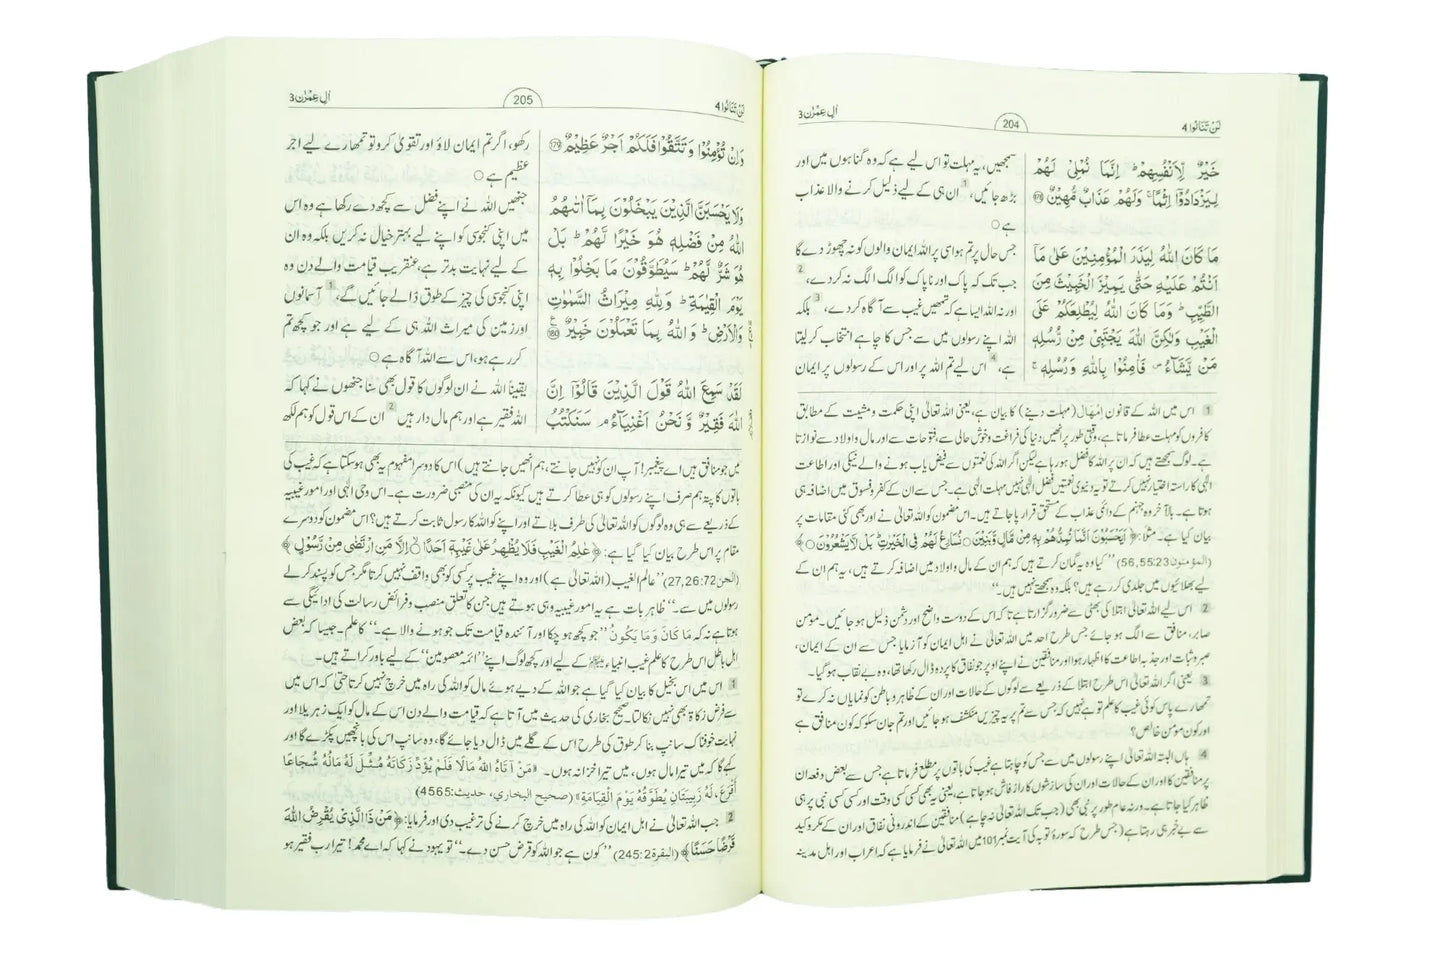 لَنْ تَنَالُوا 4
204
اٰلِ عِمْرٰن 3
خَيْرٌ لِّاَنْفُسِهِمْ ؕ اِنَّمَا نُمْلِيْ لَهُمْ
لِيَزْدَادُوْۤا اِثْمًا ۚ وَلَهُمْ عَذَابٌ مُّهِيْنٌ ﴿178﴾
مَا كَانَ اللّٰهُ لِيَذَرَ الْمُؤْمِنِيْنَ عَلٰى مَاۤ
اَنْتُمْ عَلَيْهِ حَتّٰى يَمِيْزَ الْخَبِيْثَ مِنَ
الطَّيِّبِ ؕ وَمَا كَانَ اللّٰهُ لِيُطْلِعَكُمْ عَلَى
الْغَيْبِ وَلٰكِنَّ اللّٰهَ يَجْتَبِيْ مِنْ رُّسُلِهٖ
مَنْ يَّشَآءُ ۪ فَاٰمِنُوْا بِاللّٰهِ وَرُسُلِهٖ ۚ
سمجھیں، یہ مہلت تو اس لیے ہے کہ وہ گناہوں میں اور
بڑھ جائیں، 1 ان ہی کے لیے ذلیل کرنے والا عذاب
ہے ○
جس حال پر تم ہو اسی پر اللہ ایمان والوں کو نہ چھوڑ دے گا
جب تک کہ پاک اور ناپاک کو الگ الگ نہ کر دے، 2
اور نہ اللہ ایسا ہے کہ تمھیں غیب سے آگاہ کر دے، 3 بلکہ
اللہ اپنے رسولوں میں سے جس کا چاہے انتخاب کر لیتا
ہے، 4 اس لیے تم اللہ پر اور اس کے رسولوں پر ایمان
1 اس میں اللہ کے قانون اِمہَال (مہلت دینے) کا بیان ہے، یعنی اللہ تعالیٰ اپنی حکمت و مشیت کے مطابق
کافروں کو مہلت عطا فرماتا ہے، وقتی طور پر انھیں دنیا کی فراغت و خوش حالی سے، فتوحات سے اور مال و اولاد سے نوازتا
ہے۔ لوگ سمجھتے ہیں کہ ان پر اللہ کا فضل ہو رہا ہے لیکن اگر اللہ کی نعمتوں سے فیض یاب ہونے والے نیکی اور اطاعت
الٰہی کا راستہ اختیار نہیں کرتے تو یہ دنیوی نعمتیں فضل الٰہی نہیں مہلت الٰہی ہے۔ جس سے ان کے کفر و فسوق میں اضافہ ہی
ہوتا ہے۔ بالآخر وہ جہنم کے دائمی عذاب کے مستحق قرار پا جاتے ہیں۔ اس مضمون کو اللہ تعالیٰ نے اور بھی کئی مقامات پر
بیان کیا ہے۔ مثلاً: ﴿اَيَحْسَبُوْنَ اَنَّمَا نُمِدُّهُمْ بِهٖ مِنْ مَّالٍ وَّبَنِيْنَ ○ نُسَارِعُ لَهُمْ فِي الْخَيْرٰتِ ؕ بَلْ لَّا يَشْعُرُوْنَ ○﴾
(المؤمنون 56,55:23) ”کیا وہ یہ گمان کرتے ہیں کہ ہم ان کے مال و اولاد میں اضافہ کرتے ہیں، یہ ہم ان کے
لیے بھلائیوں میں جلدی کر رہے ہیں؟ بلکہ وہ سمجھتے ہی نہیں ہیں۔“
2 اس لیے اللہ تعالیٰ ابتلا کی بھٹی سے ضرور گزارتا ہے تاکہ اس کے دوست واضح اور دشمن ذلیل ہو جائیں۔ مومن
صابر، منافق سے الگ ہو جائے جس طرح احد میں اللہ تعالیٰ نے اہل ایمان کو آزمایا جس سے ان کے ایمان،
صبر و ثبات اور جذبۂ اطاعت کا اظہار ہوا اور منافقین نے اپنے اوپر جو نفاق کا پردہ ڈال رکھا تھا، وہ بے نقاب ہو گیا۔
3 یعنی اگر اللہ تعالیٰ اس طرح ابتلا کے ذریعے سے لوگوں کے حالات اور ان کے ظاہر و باطن کو نمایاں نہ کرے تو
تمھارے پاس کوئی غیب کا علم تو ہے نہیں کہ جس سے تم پر یہ چیزیں منکشف ہو جائیں اور تم جان سکو کہ کون منافق ہے
اور کون مومن خالص؟
4 ہاں البتہ اللہ تعالیٰ اپنے رسولوں میں سے جس کو چاہتا ہے غیب کی باتوں پر مطلع فرماتا ہے جس سے بعض دفعہ ان
پر منافقین کا اور ان کے حالات اور ان کی سازشوں کا راز فاش ہو جاتا ہے، یعنی یہ بھی کسی کسی وقت اور کسی کسی نبی پر ہی
ظاہر کیا جاتا ہے۔ ورنہ عام طور پر نبی بھی (جب تک اللہ تعالیٰ نہ چاہے) منافقین کے اندرونی نفاق اور ان کے مکر و کید
سے بے خبر ہی رہتا ہے (جس طرح کہ سورۂ توبہ کی آیت نمبر 101 میں اللہ تعالیٰ نے فرمایا ہے کہ اعراب اور اہل مدینہ
لَنْ تَنَالُوا 4
205
اٰلِ عِمْرٰن 3
وَاِنْ تُؤْمِنُوْا وَتَتَّقُوْا فَلَكُمْ اَجْرٌ عَظِيْمٌ ﴿179﴾
وَلَا يَحْسَبَنَّ الَّذِيْنَ يَبْخَلُوْنَ بِمَاۤ اٰتٰىهُمُ
اللّٰهُ مِنْ فَضْلِهٖ هُوَ خَيْرًا لَّهُمْ ؕ بَلْ
هُوَ شَرٌّ لَّهُمْ ؕ سَيُطَوَّقُوْنَ مَا بَخِلُوْا بِهٖ
يَوْمَ الْقِيٰمَةِ ؕ وَلِلّٰهِ مِيْرَاثُ السَّمٰوٰتِ
وَالْاَرْضِ ؕ وَاللّٰهُ بِمَا تَعْمَلُوْنَ خَبِيْرٌ ﴿180﴾
لَقَدْ سَمِعَ اللّٰهُ قَوْلَ الَّذِيْنَ قَالُوْۤا اِنَّ
اللّٰهَ فَقِيْرٌ وَّنَحْنُ اَغْنِيَآءُ ۘ سَنَكْتُبُ
رکھو، اگر تم ایمان لاؤ اور تقویٰ کرو تو تمھارے لیے اجر
عظیم ہے ○
جنھیں اللہ نے اپنے فضل سے کچھ دے رکھا ہے وہ اس
میں اپنی کنجوسی کو اپنے لیے بہتر خیال نہ کریں بلکہ وہ ان
کے لیے نہایت بدتر ہے، عنقریب قیامت والے دن وہ
اپنی کنجوسی کی چیز کے طوق ڈالے جائیں گے، 1 آسمانوں
اور زمین کی میراث اللہ ہی کے لیے ہے اور جو کچھ تم
کر رہے ہو، اس سے اللہ آگاہ ہے ○
یقیناً اللہ نے ان لوگوں کا قول بھی سنا جنھوں نے کہا کہ
اللہ فقیر ہے اور ہم مال دار ہیں 2 ان کے اس قول کو ہم لکھ
میں جو منافق ہیں اے پیغمبر! آپ ان کو نہیں جانتے، ہم انھیں جانتے ہیں) اس کا دوسرا مفہوم یہ بھی ہو سکتا ہے کہ غیب کی
باتوں کا پتہ ہم صرف اپنے رسولوں کو ہی عطا کرتے ہیں کیونکہ یہ ان کی منصبی ضرورت ہے۔ اس وحی الٰہی اور امور غیبیہ
کے ذریعے سے ہی وہ لوگوں کو اللہ تعالیٰ کی طرف بلاتے اور اپنے کو اللہ کا رسول ثابت کرتے ہیں؟ اس مضمون کو دوسرے
مقام پر اس طرح بیان کیا گیا ہے: ﴿عٰلِمُ الْغَيْبِ فَلَا يُظْهِرُ عَلٰى غَيْبِهٖۤ اَحَدًا ○ اِلَّا مَنِ ارْتَضٰى مِنْ رَّسُوْلٍ﴾
(الجن 27,26:72) ”عالم الغیب (اللہ تعالیٰ ہے) اور وہ اپنے غیب پر کسی کو بھی واقف نہیں کرتا مگر جس کو پسند کر لے
رسولوں میں سے۔“ ظاہر بات ہے یہ امور غیبیہ وہی ہوتے ہیں جن کا تعلق منصب و فرائض رسالت کی ادائیگی سے
ہوتا ہے نہ کہ مَا كَانَ وَمَا يَكُوْنُ ”جو کچھ ہو چکا اور آئندہ قیامت تک جو ہونے والا ہے۔“ کا علم۔ جیسا کہ بعض
اہل باطل اس طرح کا علم غیب انبیاء ﷺ کے لیے اور کچھ لوگ اپنے ”ائمہ معصومین“ کے لیے باور کراتے ہیں۔
1 اس میں اس بخیل کا بیان کیا گیا ہے جو اللہ کے دیے ہوئے مال کو اللہ کی راہ میں خرچ نہیں کرتا حتیٰ کہ اس میں
سے فرض زکاۃ بھی نہیں نکالتا۔ صحیح بخاری کی حدیث میں آتا ہے کہ قیامت والے دن اس کے مال کو ایک زہریلا اور
نہایت خوفناک سانپ بنا کر طوق کی طرح اس کے گلے میں ڈال دیا جائے گا، وہ سانپ اس کی بانچھیں پکڑے گا اور
کہے گا کہ میں تیرا مال ہوں، میں تیرا خزانہ ہوں۔ «مَنْ آتَاهُ اللّٰهُ مَالًا فَلَمْ يُؤَدِّ زَكَاتَهُ مُثِّلَ لَهُ مَالُهُ شُجَاعًا
أَقْرَعَ، لَهُ زَبِيبَتَانِ يُطَوَّقُهُ يَوْمَ الْقِيَامَةِ» (صحيح البخاري، حديث: 4565)
2 جب اللہ تعالیٰ نے اہل ایمان کو اللہ کی راہ میں خرچ کرنے کی ترغیب دی اور فرمایا: ﴿مَنْ ذَا الَّذِيْ يُقْرِضُ اللّٰهَ
قَرْضًا حَسَنًا﴾ (البقرة 245:2) ”کون ہے جو اللہ کو قرض حسن دے۔“ تو یہود نے کہا کہ اے محمد! تیرا رب فقیر ہو